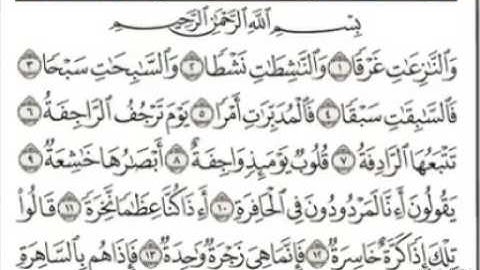 بِسْمِ ٱللَّهِ ٱلرَّحْمَٰنِ ٱلرَّحِيمِ
وَٱلنَّٰزِعَٰتِ غَرْقًا ١ وَٱلنَّٰشِطَٰتِ نَشْطًا ٢ وَٱلسَّٰبِحَٰتِ سَبْحًا ٣
فَٱلسَّٰبِقَٰتِ سَبْقًا ٤ فَٱلْمُدَبِّرَٰتِ أَمْرًا ٥ يَوْمَ تَرْجُفُ ٱلرَّاجِفَةُ ٦
تَتْبَعُهَا ٱلرَّادِفَةُ ٧ قُلُوبٌ يَوْمَئِذٍ وَاجِفَةٌ ٨ أَبْصَٰرُهَا خَٰشِعَةٌ ٩
يَقُولُونَ أَءِنَّا لَمَرْدُودُونَ فِى ٱلْحَافِرَةِ ١٠ أَءِذَا كُنَّا عِظَٰمًا نَّخِرَةً ١١ قَالُوا۟
تِلْكَ إِذًا كَرَّةٌ خَاسِرَةٌ ١٢ فَإِنَّمَا هِىَ زَجْرَةٌ وَٰحِدَةٌ ١٣ فَإِذَا هُم بِٱلسَّاهِرَةِ